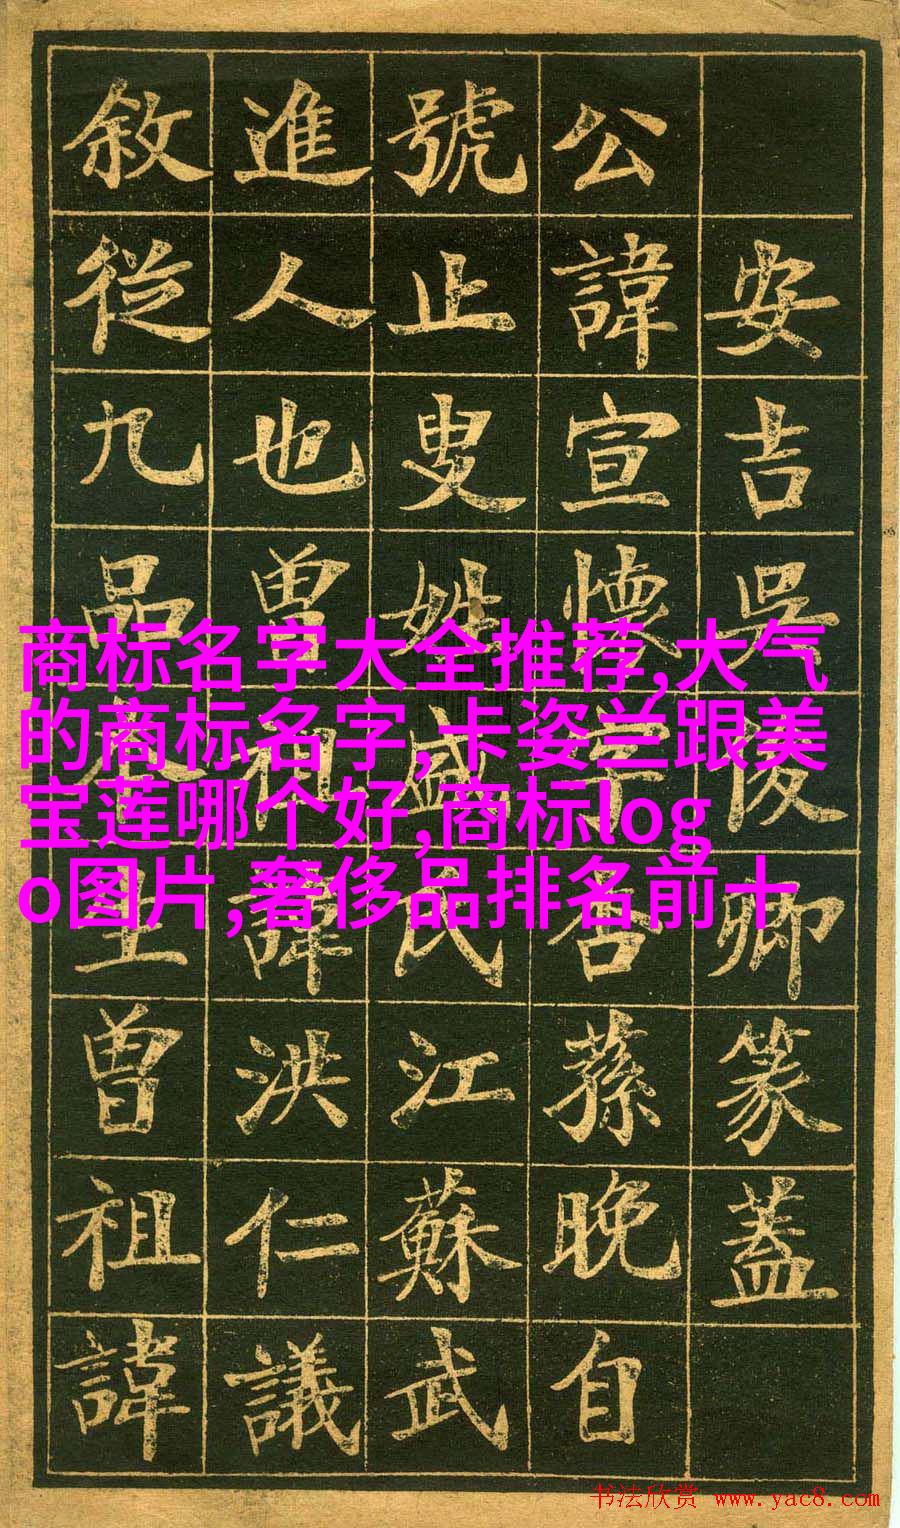 安吉吳俊卿篆蓋
公諱宣懷字杏蓀晚自
號止叟姓盛氏江蘇武
進人也曾祖諱洪仁議
敘從九品本生曾祖諱
商标名字大全推荐,大气
的商标名字,卡姿兰跟美
宝莲哪个好,商标log
o图片,奢侈品排名前十
书法欣赏 www.yac8.com